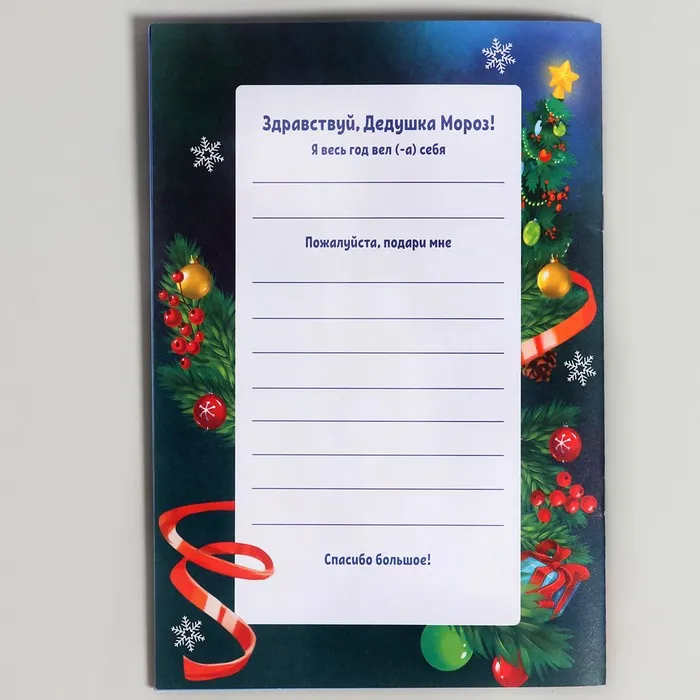 Здравствуй, Дедушка Мороз!
Я весь год вел (-а) себя
Пожалуйста, подари мне
Спасибо большое!